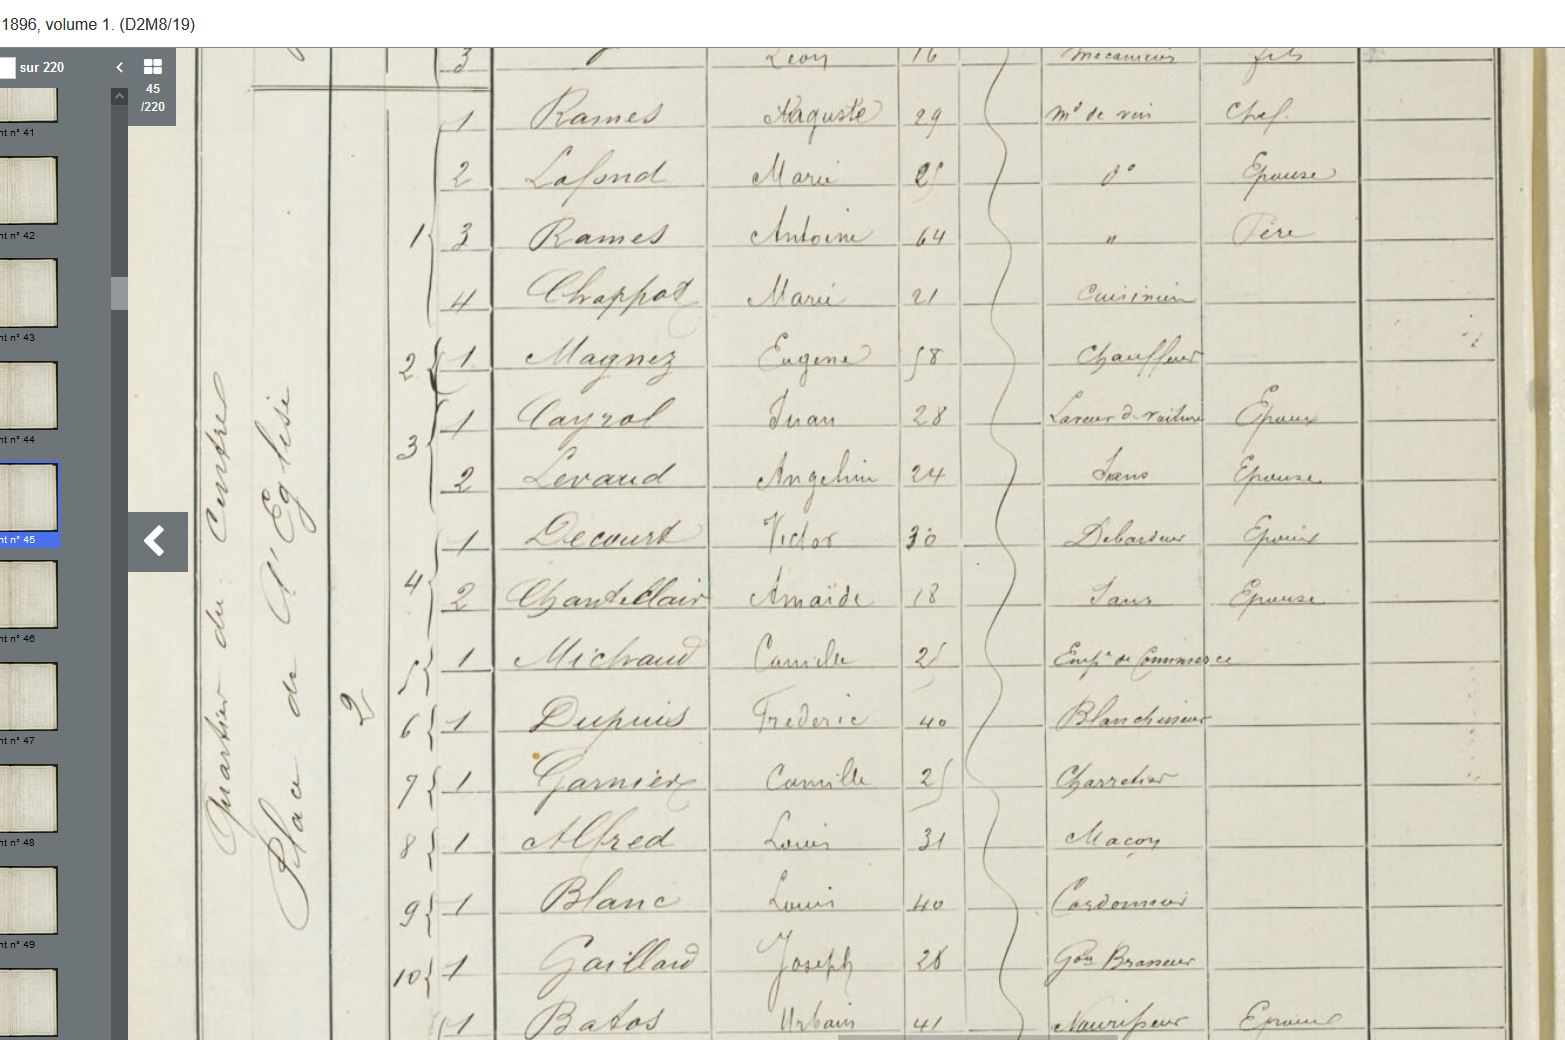 1896, volume 1. (D2M8/19)
sur 220
45
/220
nt n° 41
nt n° 42
nt n° 43
nt n° 44
nt n° 45
nt n° 46
nt n° 47
nt n° 48
nt n° 49
Quartier du Centre
Place de l'Eglise
2
3 Léon 16 mecanicien fils
1 1 Rames Auguste 29 Md de vin Chef
2 Lafond Marie 25 do Epouse
3 Rames Antoine 64 " Père
4 Chappot Marie 21 Cuisinière
2 1 Magnez Eugene 58 Chauffeur
3 1 Cayrol Juan 28 Laveur de voiture Epoux
2 Levaud Angelin 24 Sans Epouse
4 1 Decourt Victor 30 Debardeur Epoux
2 Chanteclair Amaïde 18 Sans Epouse
5 1 Michaud Camille 25 Empé de Commerce
6 1 Dupuis Frederic 40 Blanchisseur
7 1 Garnier Camille 25 Charretier
8 1 Alfred Louis 31 Maçon
9 1 Blanc Louis 40 Cordonnier
10 1 Gaillard Joseph 28 Gon Brasseur
1 Batos Urbain 41 Nourisseur Epoux